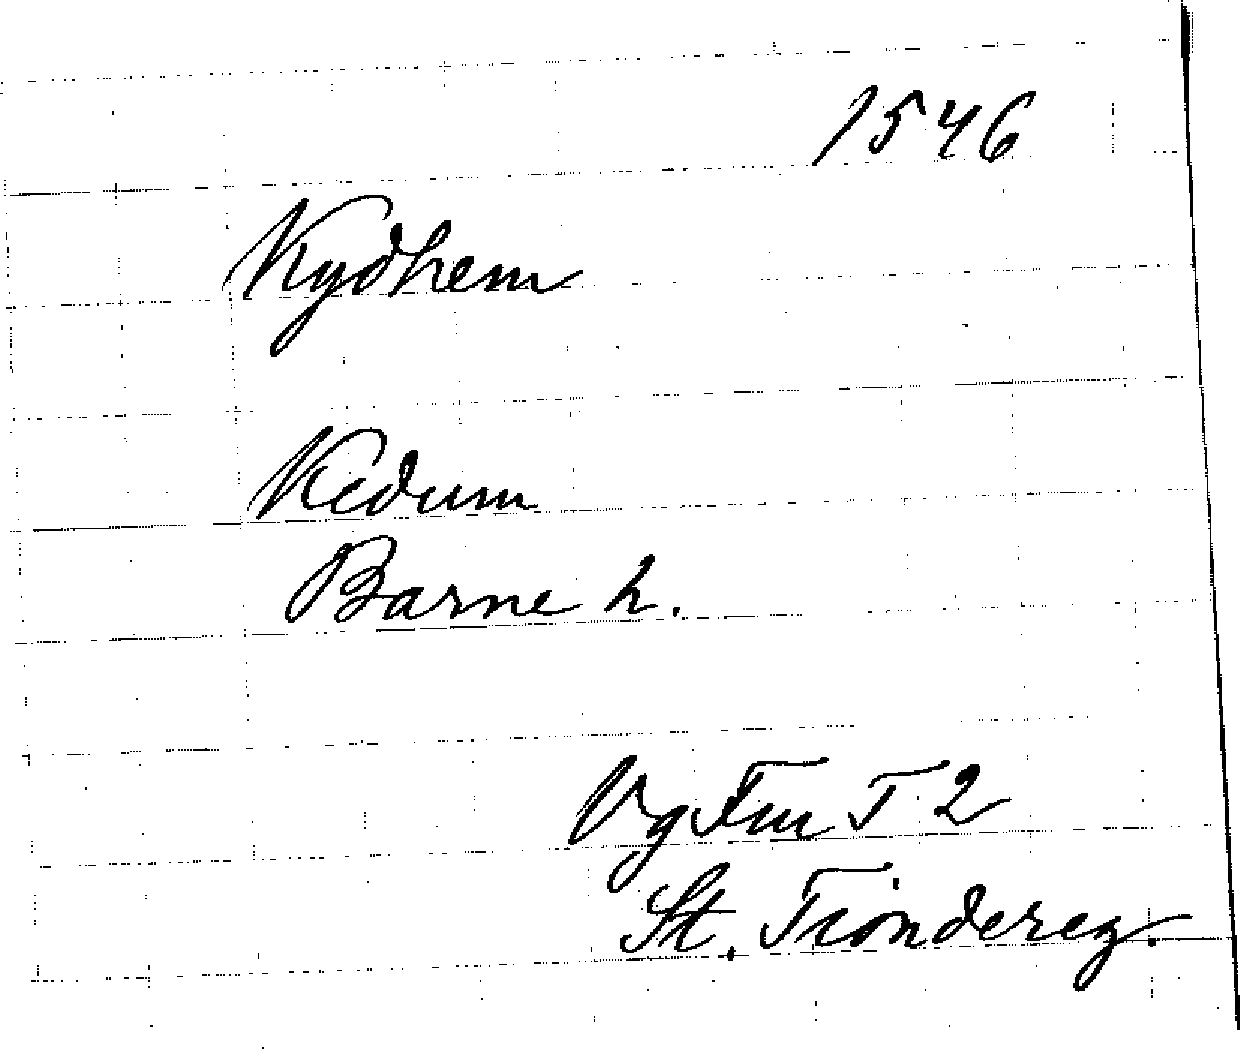 1546
Kydhem
Kedum
Barne h.
Vg Fru T 2
St. Tiondereg.